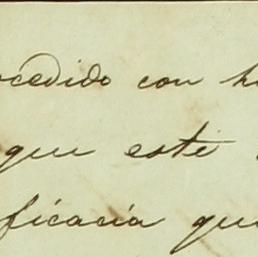 ocedido con h
que este
ficacia que